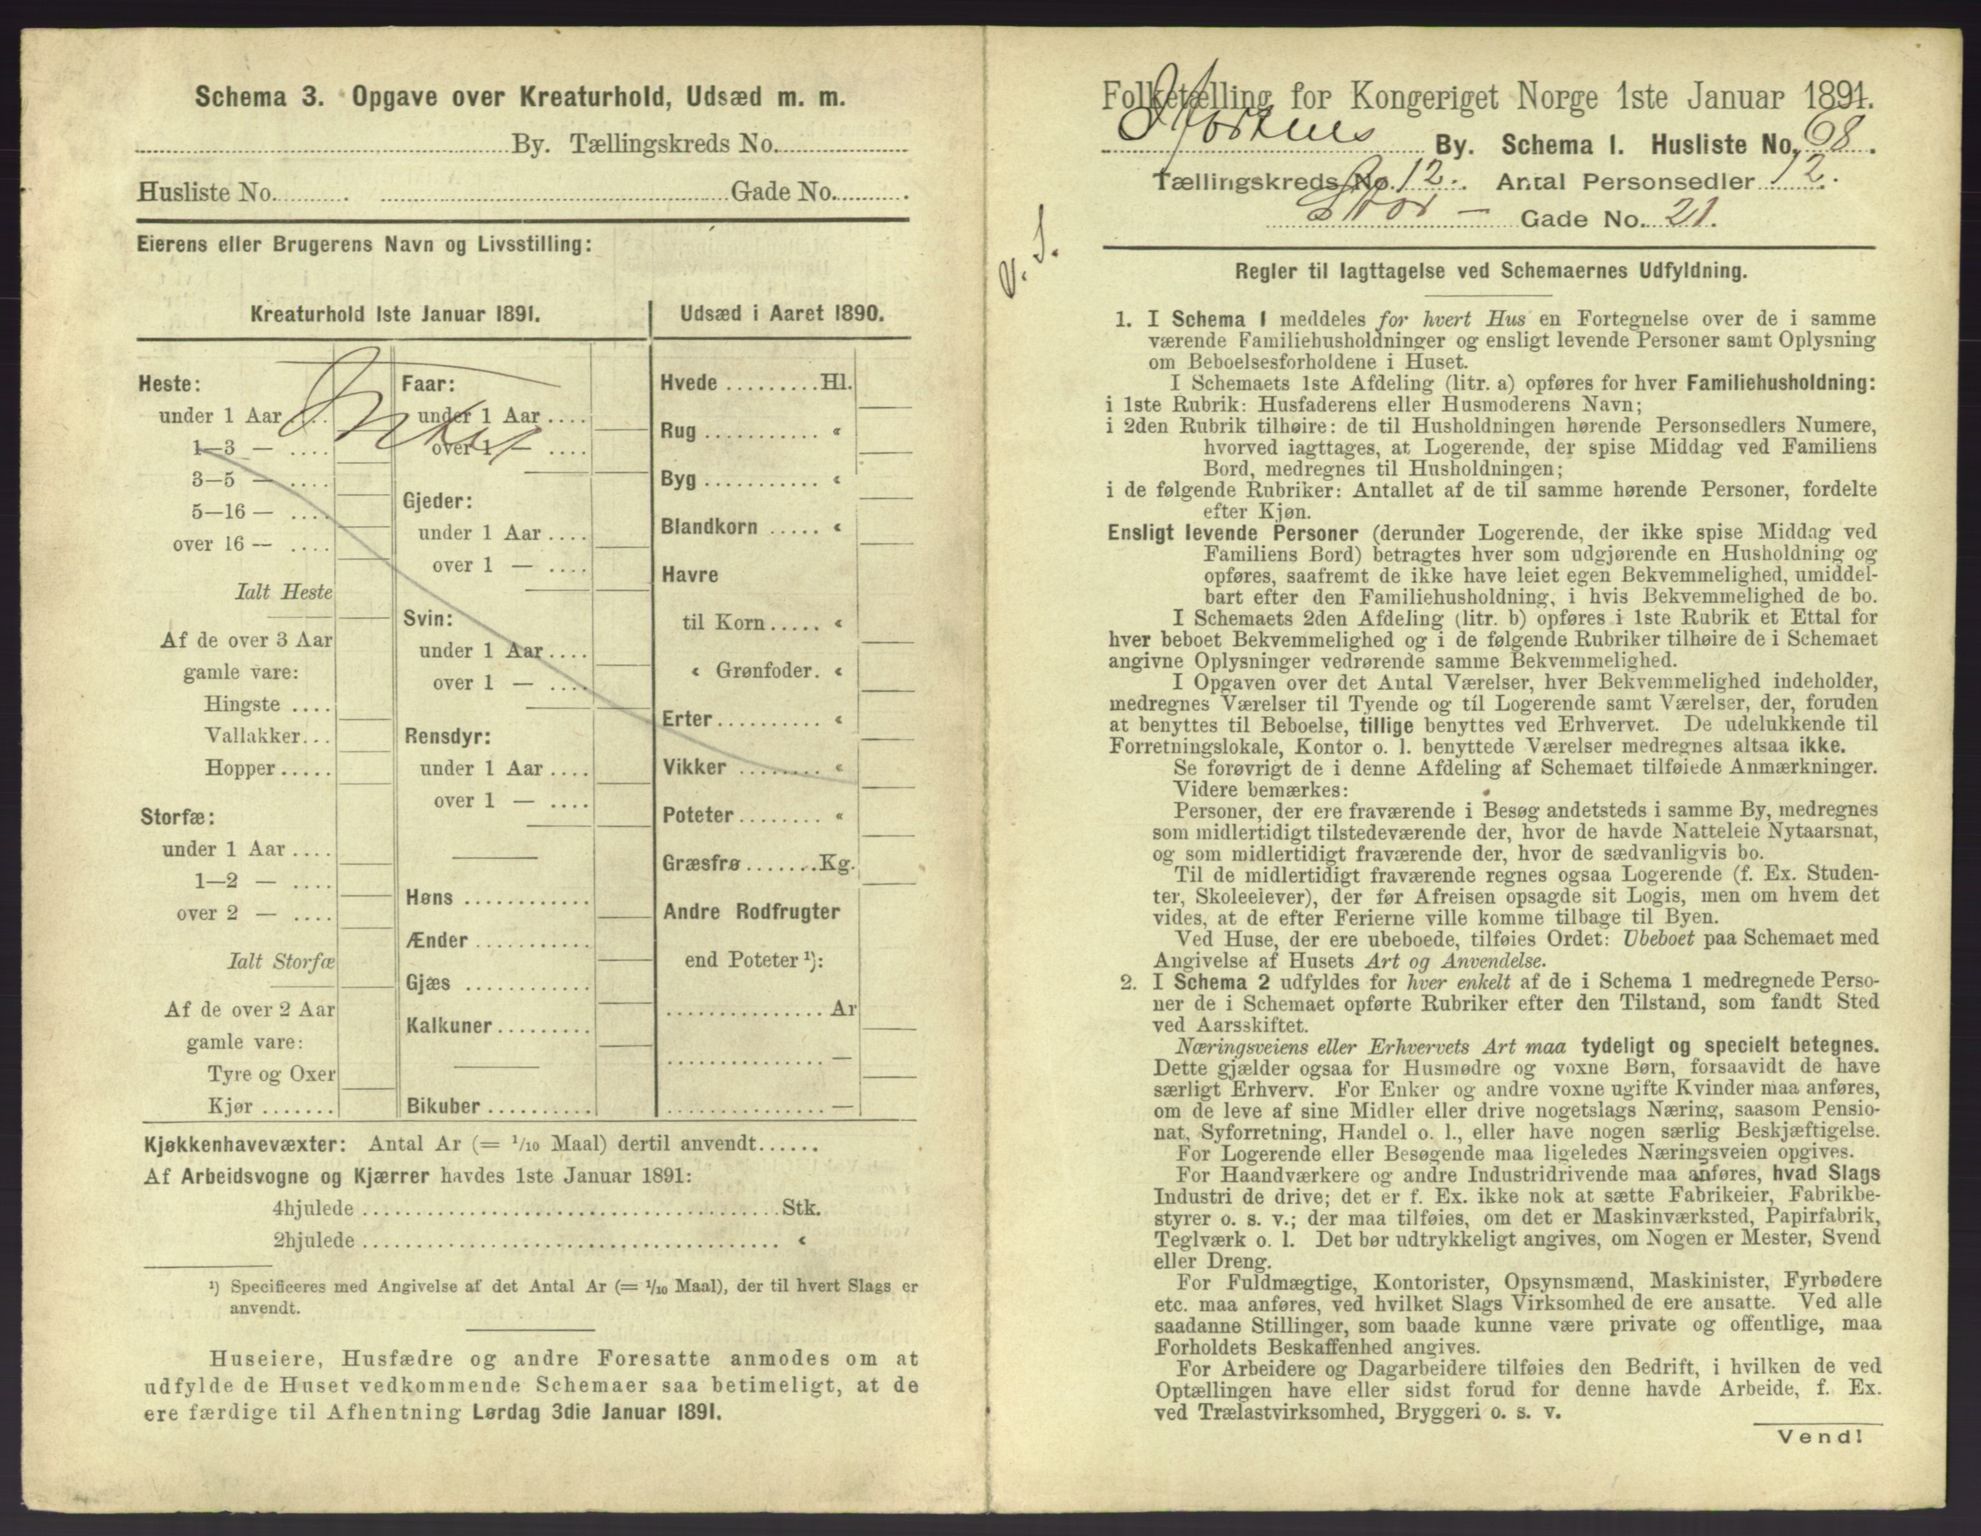 Schema 3. Opgave over Kreaturhold, Udsæd m. m.
By. Tællingskreds No.
Husliste No. Gade No.
Eierens eller Brugerens Navn og Livsstilling:
Kreaturhold 1ste Januar 1891.
Heste:
under 1 Aar ....
1—3 — ....
3—5 — ....
5—16 — ....
over 16 — ....
Ialt Heste
Af de over 3 Aar
gamle vare:
Hingste ....
Vallakker...
Hopper.....
Storfæ:
under 1 Aar ....
1—2 — ....
over 2 — ....
Ialt Storfæ
Af de over 2 Aar
gamle vare:
Tyre og Oxer
Kjør .......
Faar:
under 1 Aar ....
over 1 — ....
Gjeder:
under 1 Aar ....
over 1 — ....
Svin:
under 1 Aar ....
over 1 — ....
Rensdyr:
under 1 Aar ....
over 1 — ....
Høns ............
Ænder ...........
Gjæs ............
Kalkuner.........
Bikuber ..........
Intet
Udsæd i Aaret 1890.
Hvede .........Hl.
Rug ........... «
Byg ........... «
Blandkorn ..... «
Havre
til Korn ..... «
« Grønfoder. «
Erter.......... «
Vikker ........ «
Poteter........ «
Græsfrø .......Kg.
Andre Rodfrugter
end Poteter ¹):
............... Ar
............... —
............... —
Kjøkkenhavevæxter: Antal Ar (= 1/10 Maal) dertil anvendt......
Af Arbeidsvogne og Kjærrer havdes 1ste Januar 1891:
4hjulede ........................................ Stk.
2hjulede ........................................ «
¹) Specificeres med Angivelse af det Antal Ar (= 1/10 Maal), der til hvert Slags er
anvendt.
Huseiere, Husfædre og andre Foresatte anmodes om at
udfylde de Huset vedkommende Schemaer saa betimeligt, at de
ere færdige til Afhentning Lørdag 3die Januar 1891.
Folketælling for Kongeriget Norge 1ste Januar 1891.
Hortens By. Schema 1. Husliste No. 68.
Tællingskreds No. 12. Antal Personsedler 12.
Stor — Gade No. 21.
v. S.
Regler til Iagttagelse ved Schemaernes Udfyldning.
1. I Schema 1 meddeles for hvert Hus en Fortegnelse over de i samme
værende Familiehusholdninger og ensligt levende Personer samt Oplysning
om Beboelsesforholdene i Huset.
I Schemaets 1ste Afdeling (litr. a) opføres for hver Familiehusholdning:
i 1ste Rubrik: Husfaderens eller Husmoderens Navn;
i 2den Rubrik tilhøire: de til Husholdningen hørende Personsedlers Numere,
hvorved iagttages, at Logerende, der spise Middag ved Familiens
Bord, medregnes til Husholdningen;
i de følgende Rubriker: Antallet af de til samme hørende Personer, fordelte
efter Kjøn.
Ensligt levende Personer (derunder Logerende, der ikke spise Middag ved
Familiens Bord) betragtes hver som udgjørende en Husholdning og
opføres, saafremt de ikke have leiet egen Bekvemmelighed, umiddel-
bart efter den Familiehusholdning, i hvis Bekvemmelighed de bo.
I Schemaets 2den Afdeling (litr. b) opføres i 1ste Rubrik et Ettal for
hver beboet Bekvemmelighed og i de følgende Rubriker tilhøire de i Schemaet
angivne Oplysninger vedrørende samme Bekvemmelighed.
I Opgaven over det Antal Værelser, hver Bekvemmelighed indeholder,
medregnes Værelser til Tyende og til Logerende samt Værelser, der, foruden
at benyttes til Beboelse, tillige benyttes ved Erhvervet. De udelukkende til
Forretningslokale, Kontor o. l. benyttede Værelser medregnes altsaa ikke.
Se forøvrigt de i denne Afdeling af Schemaet tilføiede Anmærkninger.
Videre bemærkes:
Personer, der ere fraværende i Besøg andetsteds i samme By, medregnes
som midlertidigt tilstedeværende der, hvor de havde Natteleie Nytaarsnat,
og som midlertidigt fraværende der, hvor de sædvanligvis bo.
Til de midlertidigt fraværende regnes ogsaa Logerende (f. Ex. Studen-
ter, Skoleelever), der før Afreisen opsagde sit Logis, men om hvem det
vides, at de efter Ferierne ville komme tilbage til Byen.
Ved Huse, der ere ubeboede, tilføies Ordet: Ubeboet paa Schemaet med
Angivelse af Husets Art og Anvendelse.
2. I Schema 2 udfyldes for hver enkelt af de i Schema 1 medregnede Perso-
ner de i Schemaet opførte Rubriker efter den Tilstand, som fandt Sted
ved Aarsskiftet.
Næringsveiens eller Erhvervets Art maa tydeligt og specielt betegnes.
Dette gjælder ogsaa for Husmødre og voxne Børn, forsaavidt de have
særligt Erhverv. For Enker og andre voxne ugifte Kvinder maa anføres,
om de leve af sine Midler eller drive nogetslags Næring, saasom Pensio-
nat, Syforretning, Handel o. l., eller have nogen særlig Beskjæftigelse.
For Logerende eller Besøgende maa ligeledes Næringsveien opgives.
For Haandværkere og andre Industridrivende maa anføres, hvad Slags
Industri de drive; det er f. Ex. ikke nok at sætte Fabrikeier, Fabrikbe-
styrer o. s. v.; der maa tilføies, om det er Maskinværksted, Papirfabrik,
Teglværk o. l. Det bør udtrykkeligt angives, om Nogen er Mester, Svend
eller Dreng.
For Fuldmægtige, Kontorister, Opsynsmænd, Maskinister, Fyrbødere
etc. maa anføres, ved hvilket Slags Virksomhed de ere ansatte. Ved alle
saadanne Stillinger, som baade kunne være private og offentlige, maa
Forholdets Beskaffenhed angives.
For Arbeidere og Dagarbeidere tilføies den Bedrift, i hvilken de ved
Optællingen have eller sidst forud for denne havde Arbeide, f. Ex.
ved Trælastvirksomhed, Bryggeri o. s. v.
Vend!